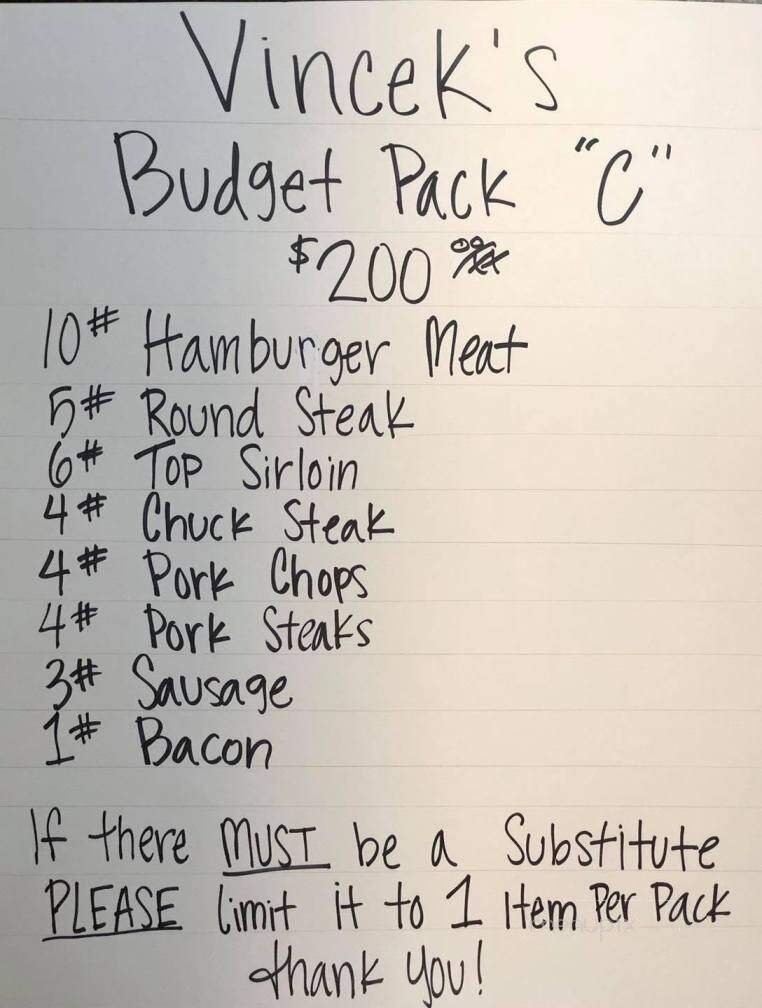 Vincek's
Budget Pack "C"
$200
10# Hamburger Meat
5# Round Steak
6# Top Sirloin
4# Chuck Steak
4# Pork Chops
4# Pork Steaks
3# Sausage
1# Bacon
If there MUST be a Substitute
PLEASE limit it to 1 Item Per Pack
thank you!